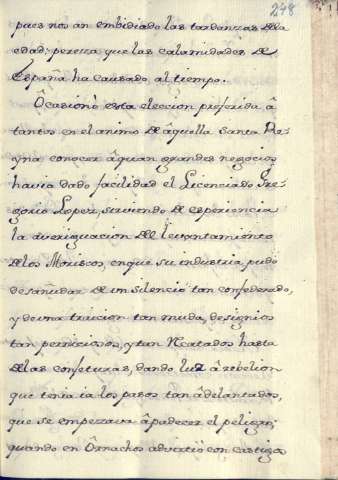 248
pues nos an embidiado las tardanzas de la
edad; pereza que las calamidades de
España ha causado al tiempo.
Ôcasionò esta eleccion preferida â
tantos en el animo de âquella Santa Rey-
na conocer âquan grandes negocios
havia dado facilidad el Licenciado Gre-
gorio Lopez, sirviendo de esperiencia
la averiguacion del levantamiento
de los Moriscos, en que su industria pudo
desañudar de un silencio tan confederado,
y de una traicion tan muda, designios
tan perniciosos, y tan recatados hasta
de las confeturas, dando luz â rebelion
que tenia ia los pasos tan âdelantados,
que se empezava âpadecer el peligro;
quando en Ôrnachos advirtiò con castigos